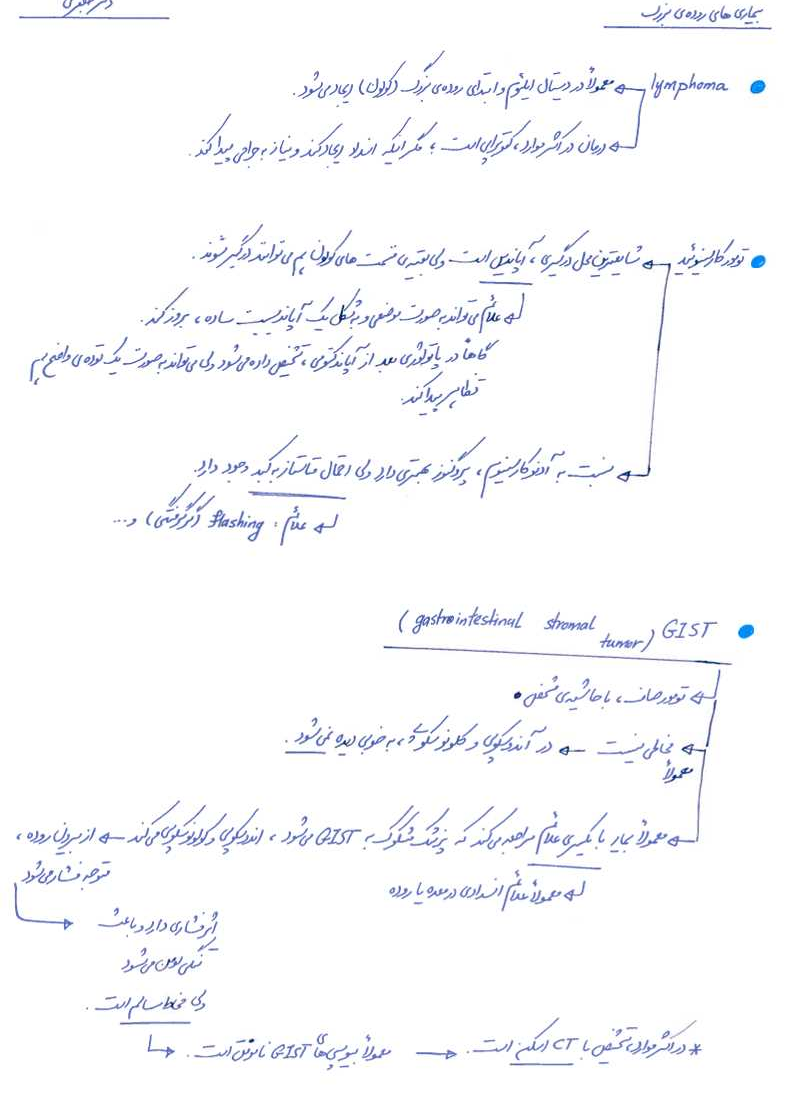 بیماری های روده‌ی بزرگ
lymphoma ← معمولاً در دیستال ایلئوم و ابتدای روده‌ی بزرگ (کولون) ایجاد می‌شود.
← درمان در اکثر موارد، کموتراپی است ؛ مگر اینکه انسداد ایجاد کند و نیاز به جراحی پیدا کند.
تومور کارسینوئید ← شایعترین محل درگیری ، آپاندیس است ولی بقیه‌ی قسمت های کولون هم می توانند درگیر شوند.
← علائم می تواند به صورت موضعی و به شکل یک آپاندیسیت ساده ، بروز کند.
گاهاً در پاتولوژی بعد از آپاندکتومی ، تشخیص داده می‌شود ولی می تواند به صورت یک توده‌ی واضح هم
تظاهر پیدا کند.
← نسبت به آدنوکارسینوم ، پروگنوز بهتری دارد ولی احتمال متاستاز به کبد وجود دارد.
← علائم : flashing (گرگرفتگی) و...
GIST (gastrointestinal stromal
tumor)
← تومور صاف ، با حاشیه‌ی مشخص
← مخاطی نیست ← در آندوسکوپی و کلونوسکوپی ، به خوبی دیده نمی‌شود .
معمولاً
← معمولاً بیمار با یکسری علائم مراجعه می‌کند که پزشک مشکوک به GIST می‌شود ، اندوسکوپی و کولونوسکوپی می‌کند ← از بیرون روده ،
متوجه فشار می‌شود
← معمولاً علائم انسدادی در معده یا روده
اثر فشاری دارد و باعث
تنگی لومن می‌شود
ولی مخاط سالم است .
* در اکثر موارد، تشخیص با CT اسکن است. → معمولاً بیوپسی‌های GIST ناموفق است.